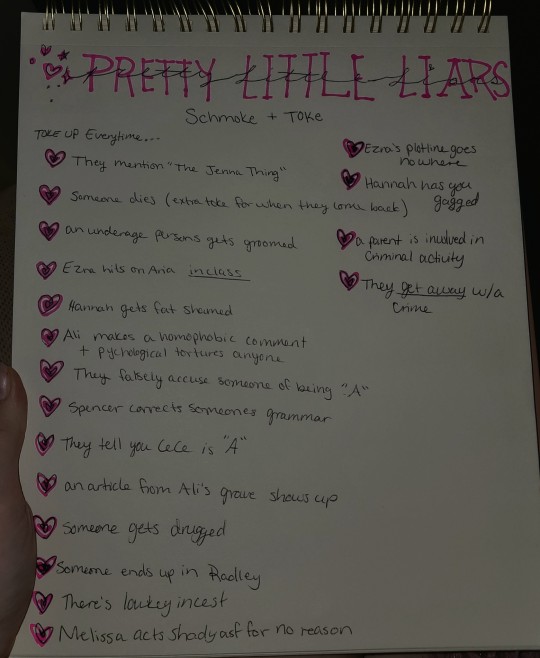 PRETTY LITTLE LIARS
Schmoke + Toke
TOKE UP Everytime...
They mention "The Jenna Thing"
Someone dies (extra toke for when they come back)
an underage persons gets groomed
Ezra hits on Aria in class
Hannah gets fat shamed
Ali makes a homophobic comment
+ pychological tortures anyone
They falsely accuse someone of being "A"
Spencer corrects someones grammar
They tell you CeCe is "A"
an article from Ali's grave shows up
Someone gets drugged
Someone ends up in Radley
There's lowkey incest
Melissa acts shady asf for no reason
Ezra's plotline goes
nowhere
Hannah has you
gagged
a parent is involved in
criminal activity
They get away w/a
crime